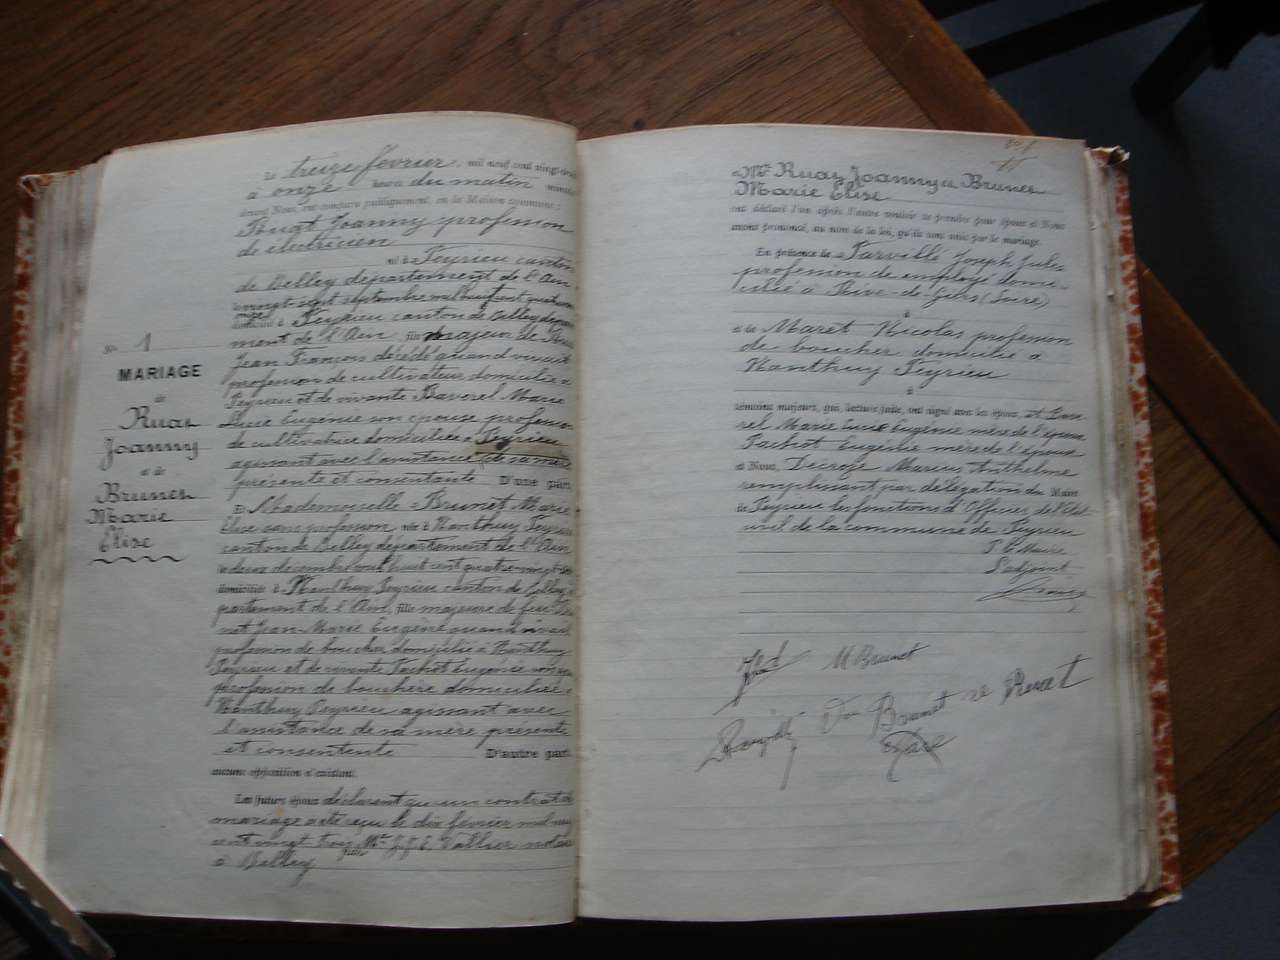 Le treize février, mil neuf cent vingt-trois
à onze heures du matin minutes
devant Nous, ont comparu publiquement, en la Maison commune:
Joanny profession
de électricien
né à Peyrieu canton
de Belley département de l'Ain
le vingt sept septembre mil huit cent quatre vingt
domicilié à Peyrieu canton de Belley départe
ment de l'Ain, fils majeur de
Jean François décédé quand vivait
profession de cultivateur domicilié à
Peyrieu et de vivante Baverel Marie
Lucie Eugénie son épouse profession
de cultivateur domiciliée à Peyrieu
agissant avec l'assistance de sa mère
présente et consentante D'une part,
Et Mademoiselle Brunet Marie
Elise sans profession, née à Nanthuy Peyrieu
canton de Belley département de l'Ain
le deux décembre mil huit cent quatre vingt
domiciliée à Nanthuy Peyrieu canton de Belley dé
partement de l'Ain, fille majeure de feu Bru
net Jean Marie Eugène quand vivait
profession de boucher domicilié à Nanthuy
Peyrieu et de vivante Pachot Eugénie son
profession de bouchère domiciliée à
Nanthuy Peyrieu agissant avec
l'assistance de sa mère présente
et consentente D'autre part,
aucune opposition n'existant.
Les futurs époux déclarent qu'un contrat de
mariage a été reçu le dix février mil neuf
cent vingt trois par Me J. f. E. Vallier notaire
à Belley
No 1
MARIAGE
de
Ruat
Joanny
et de
Brunet
Marie
Elise
Mr Ruat Joanny et Brunet
Marie Elise
ont déclaré l'un après l'autre vouloir se prendre pour époux et Nous
avons prononcé, au nom de la loi, qu'ils sont unis par le mariage.
En présence de Tarville Joseph Jules
profession de employé domi-
cilié à Rive-de-Giers (Loire)
et de Maret Nicolas profession
de boucher domicilié à
Nanthuy Peyrieu
témoins majeurs, qui, lecture faite, ont signé avec les époux, et Bave
rel Marie Lucie Eugénie mère de l'époux
Pachot Eugénie mère de l'épouse
et Nous, Décroze Marius Anthelme
remplissant par délégation du Maire
de Peyrieu les fonctions d'Officier de l'Etat-
civil de la commune de Peyrieu
P. le Maire
L'adjoint
M Brunet
Vve Brunet Ruat